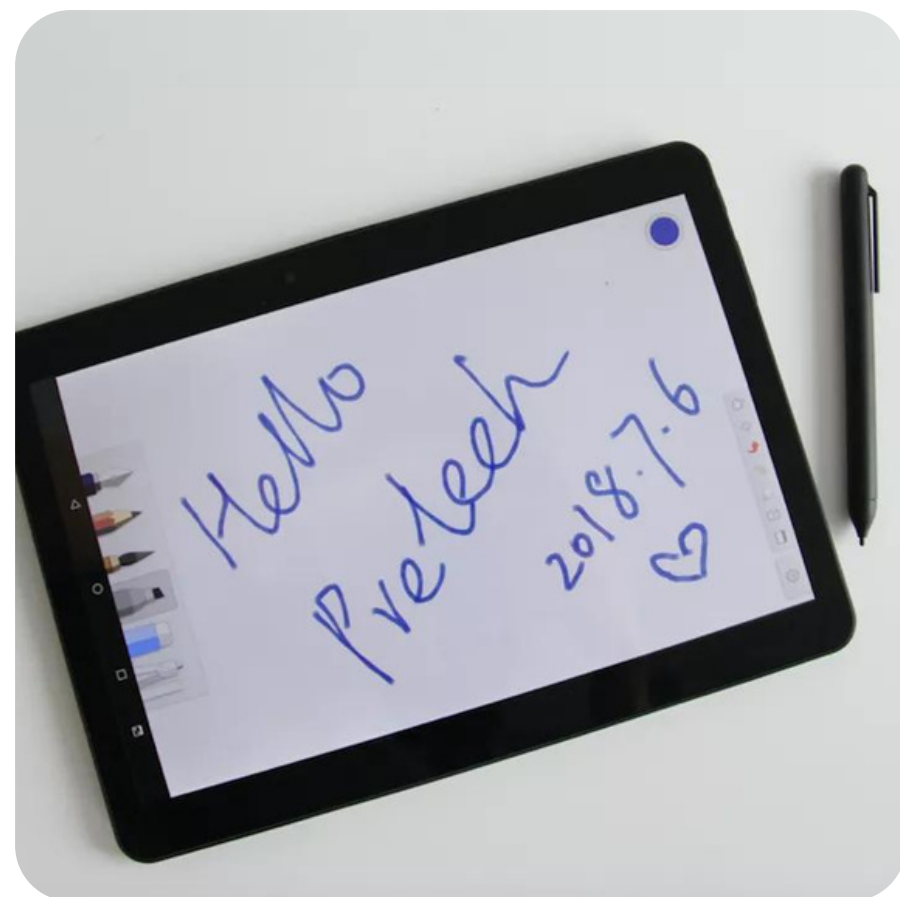 Hello
Preteeh
2018.7.6